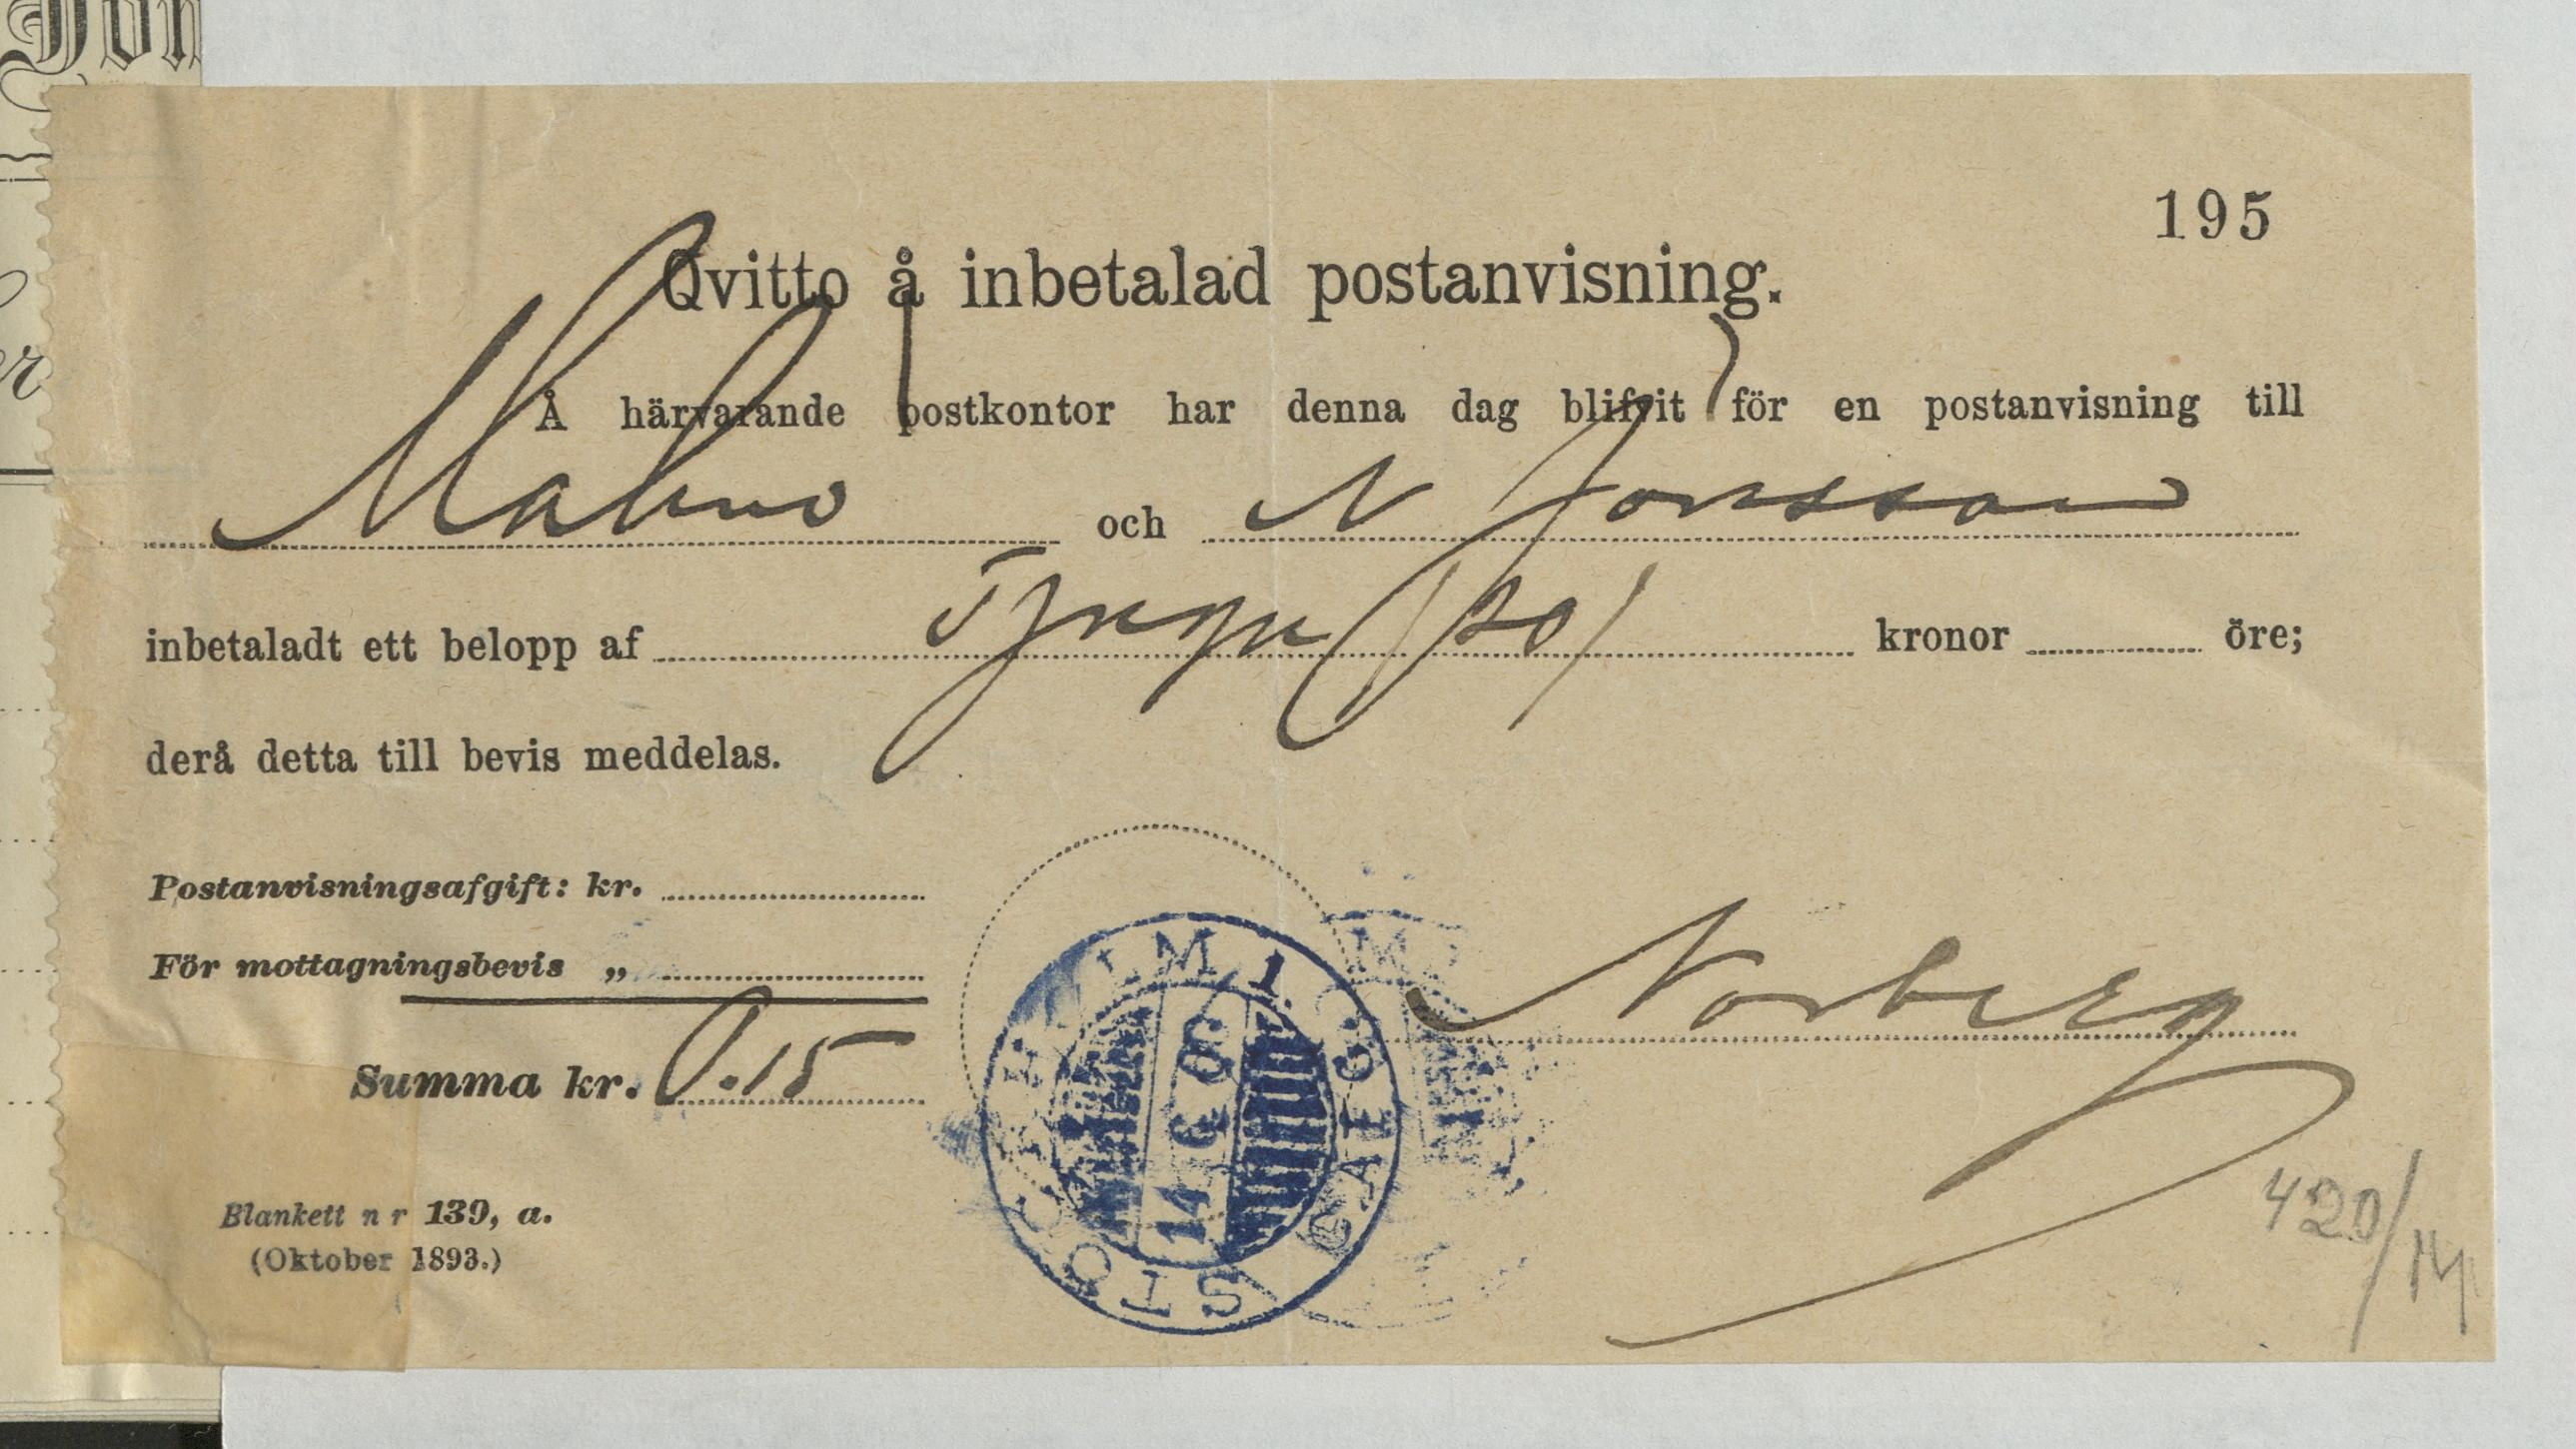 195
Qvitto å inbetalad postanvisning.
Å härvarande postkontor har denna dag blifvit för en postanvisning till
Malmö och N Jonsson
inbetaladt ett belopp af Tjugu /20/ kronor öre;
derå detta till bevis meddelas.
Postanvisningsafgift: kr.
För mottagningsbevis „
Summa kr. 0.15
Norberg
STOCKHOLM 1.
14 6
Blankett nr 139, a.
(Oktober 1893.)
420/14